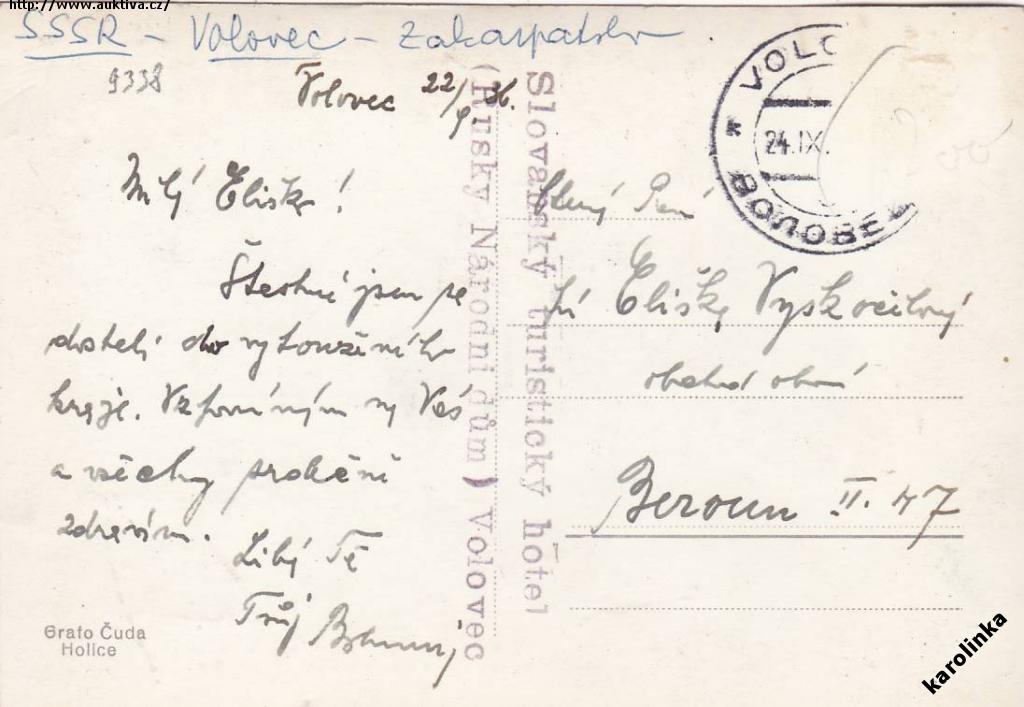 http://www.auktiva.cz/
SSSR - Volovec - Zakarpatsko
9338
Volovec 22/9. 36.
Milý Eliško!
Šťastně jsem se
dostali do vytouženého
kraje. Vzpomínám na Vás
a všechny srdečně
zdravím.
Líbý Tě
Tvůj
Grafo Čuda
Holice
Slovanský turistický hotel
(Ruský Národní dům) Volovec
* VOLO
24.IX.
ВОЛОВЕ
Paní
Eliška Vyskočilová
obchod
Beroun II. 47
karolinka